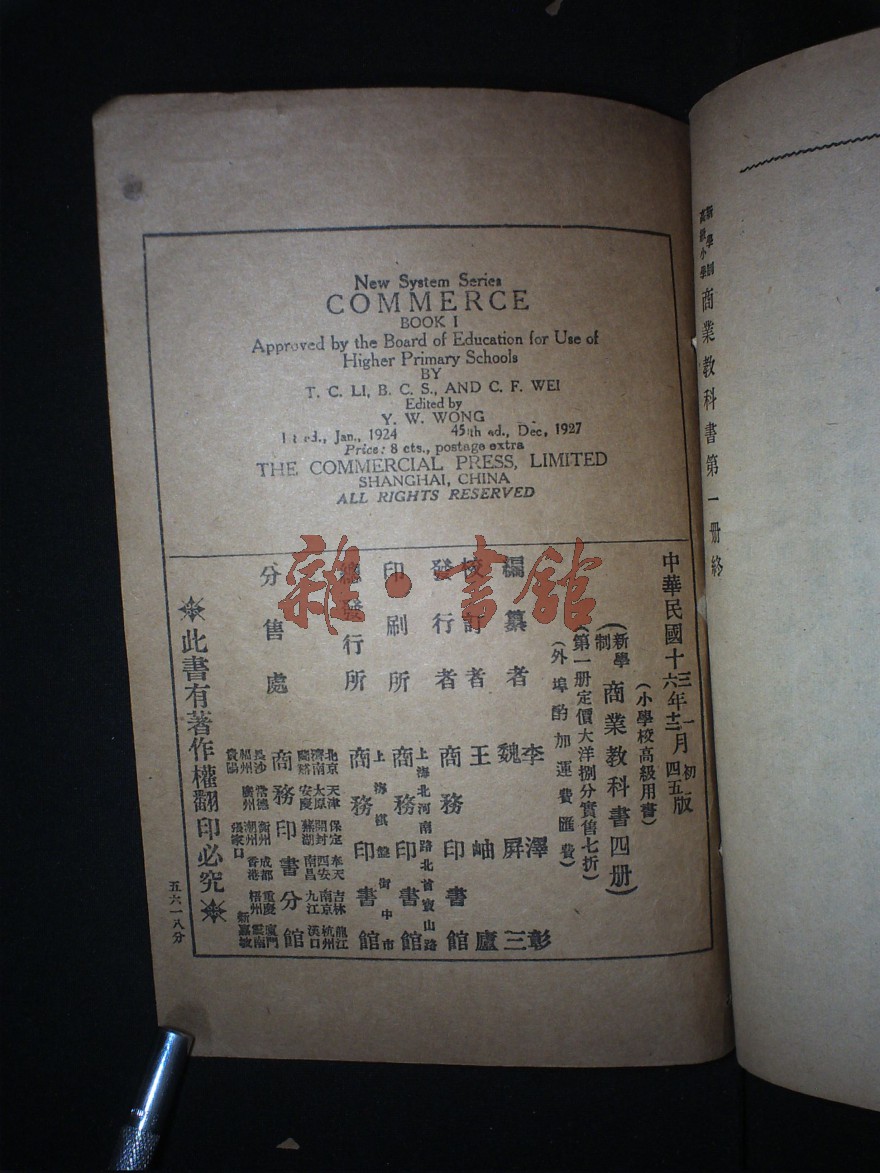 New System Series
COMMERCE
BOOK I
Approved by the Board of Education for Use of
Higher Primary Schools
BY
T. C. LI, B. C. S., AND C. F. WEI
Edited by
Y. W. WONG
1st ed., Jan., 1924 45th ed., Dec, 1927
Price: 8 cts., postage extra
THE COMMERCIAL PRESS, LIMITED
SHANGHAI, CHINA
ALL RIGHTS RESERVED
新學制
高級小學
商業教科書第一册終
中華民國十三年一月初版
十六年十二月四五版
(小學校高級用書)
(新學制商業教科書四册)
(第一册定價大洋捌分實售七折)
(外埠酌加運費匯費)
編纂者 李澤彰
魏屏三
校訂者 王岫廬
發行者 商務印書館
印刷所 上海北河南路北首寶山路
商務印書館
總發行所 上海棋盤街中市
商務印書館
分售處 商務印書分館
北京 天津 保定 奉天 吉林 龍江
濟南 太原 開封 西安 南京 杭州
安慶 蕪湖 南昌 九江 漢口
長沙 常德 衡州 成都 重慶 廈門
福州 廣州 潮州 香港 梧州 雲南
貴陽 張家口 新嘉坡
此書有著作權翻印必究
五六一八分
雜·書館